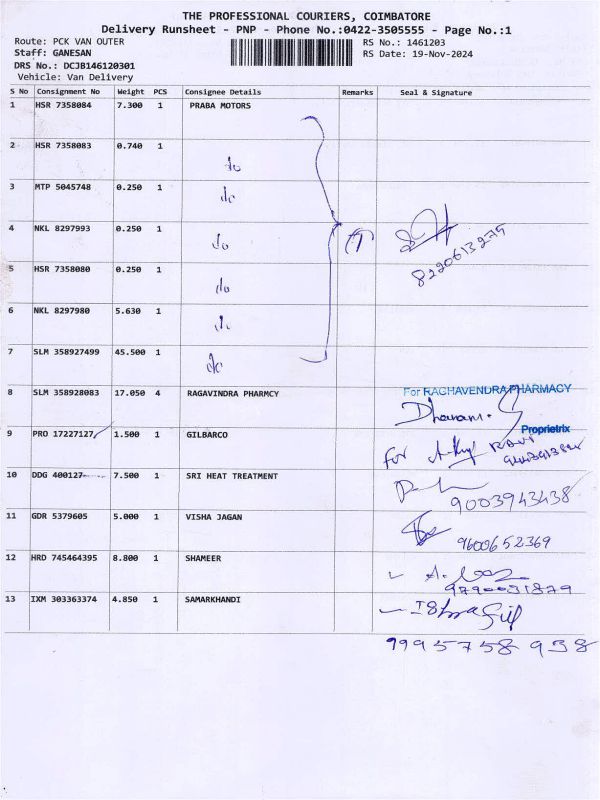 THE PROFESSIONAL COURIERS, COIMBATORE
Delivery Runsheet - PNP - Phone No.:0422-3505555 - Page No.:1
Route: PCK VAN OUTER RS No.: 1461203
Staff: GANESAN RS Date: 19-Nov-2024
DRS No.: DCJB146120301
Vehicle: Van Delivery
S No Consignment No Weight PCS Consignee Details Remarks Seal & Signature
1 HSR 7358084 7.300 1 PRABA MOTORS
2 HSR 7358083 0.740 1 do
3 MTP 5045748 0.250 1 do
4 NKL 8297993 0.250 1 do
8220613275
5 HSR 7358080 0.250 1 do
6 NKL 8297980 5.630 1 do
7 SLM 358927499 45.500 1 do
8 SLM 358928083 17.050 4 RAGAVINDRA PHARMCY For RAGHAVENDRA PHARMACY
Proprietrix
9 PRO 17227127 1.500 1 GILBARCO For
10 DDG 400127 7.500 1 SRI HEAT TREATMENT
9003943438
11 GDR 5379605 5.000 1 VISHA JAGAN
9600652369
12 HRD 745464395 8.800 1 SHAMEER
9790031879
13 IXM 303363374 4.850 1 SAMARKHANDI
9995758 938